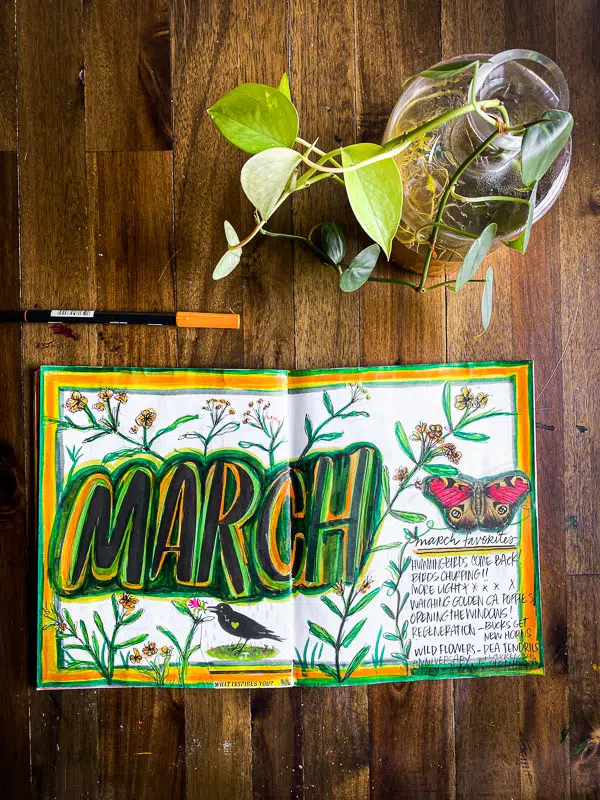 MARCH
march favorites
HUMMINGBIRDS COME BACK!
BIRDS CHIRPING!!
MORE LIGHT
WATCHING GOLDEN CA. POPPIES
OPENING THE WINDOWS!
REGENERATION - BUCKS GET
NEW HORNS
WILD FLOWERS - PEA TENDRILS
ANNIVERSARY
WHAT INSPIRES YOU?